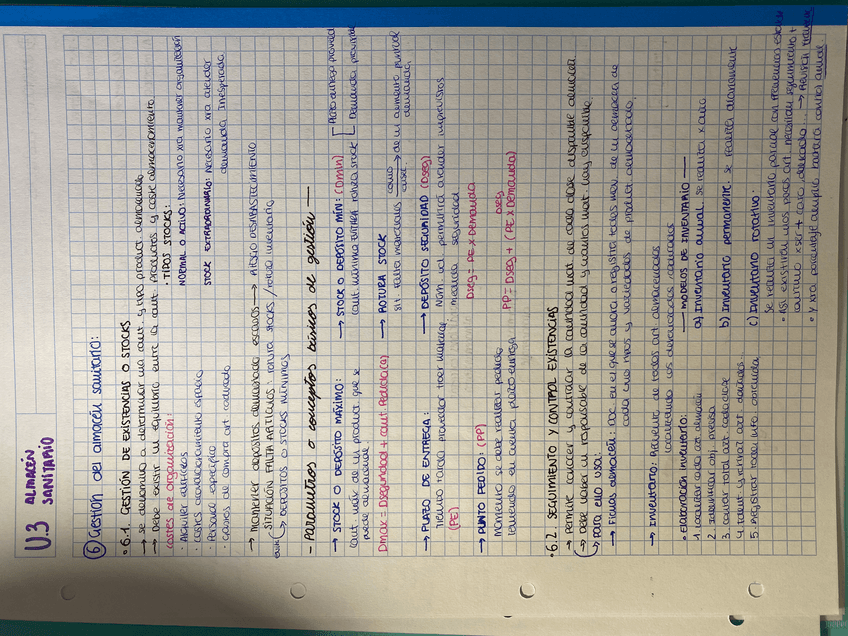 U.3 ALMACÉN
SANITARIO
⑥ Gestión del almacén sanitario:
• 6.1. GESTIÓN DE EXISTENCIAS O STOCKS
→ se denomina a determinar una cant. y tipo product almacenado
→ Debe existir un equilibrio entre la cant. productos y coste almacenamiento.
Costes de organización:
· Alquiler edificios
· Costes acondicionamiento espacio
· Personal específico
· Gastos de compra art realizado
• TIPOS STOCKS:
NORMAL O ACTIVO: Necesario xra mantener organización
STOCK EXTRAORDINARIO: Necesario xra atender
demanda inesperada
→ mantener depósitos demasiado escasos → RIESGO DESABASTECIMIENTO
SITUACIÓN FALTA ARTÍCULOS: rotura stocks / rotura inventario
→ DEPÓSITOS O STOCKS MÍNIMOS
- Parámetros o conceptos básicos de gestión —
→ STOCK O DEPÓSITO MÁXIMO:
Cant. máx de un product que se
puede almacenar.
Dmax = Dseguridad + cant. Pedida (Q)
→ STOCK O DEPÓSITO MÍN: (Dmin)
Cant. mínima EVITAR rotura stock
Plazo entrega proveed
Demanda
→ ROTURA STOCK
Sit. falta materiales → de un aumento puntual
demanda.
→ PLAZO DE ENTREGA:
Tiempo tarda proveedor traer material
(PE)
→ DEPÓSITO SEGURIDAD (Dseg)
Núm ud permitirá atender imprevistos
medida seguridad
Dseg = PE x Demanda
→ PUNTO PEDIDO: (PP)
Momento se debe realizar pedido
teniendo en cuenta plazo entrega
PP = Dseg + (PE x Demanda)
• 6.2 SEGUIMIENTO Y CONTROL EXISTENCIAS
→ Permite conocer y controlar la cantidad mat. de cada clase disponible almacén
→ Debe haber un responsable de la cantidad y cuántos mat. hay disponible
→ Para ello usa:
→ Fichas almacén: doc en el que se anotan o registra todos mov. de un almacén de
cada uno tipos y variedades de product almacenado
→ Inventario: Recuento de todos art almacenados
localizando los demasiados
• Elaboración inventario:
1. Localizar cada art almacén
2. Identificar obj. precisa
3. Contar total art. cada clase
4. Identif. y
5. Registrar toda info obtenida
— MODELOS DE INVENTARIO —
a) Inventario anual. Se realiza x año
b) Inventario permanente se realiza diariamente
c) Inventario rotativo:
Se realiza un inventario parcial con frecuencia
• Así existirán unos pocos art. necesitan seguimiento +
continuo x ser + caro, delicado... → Revisión
• Y xra porcentaje amplio bastará control anual